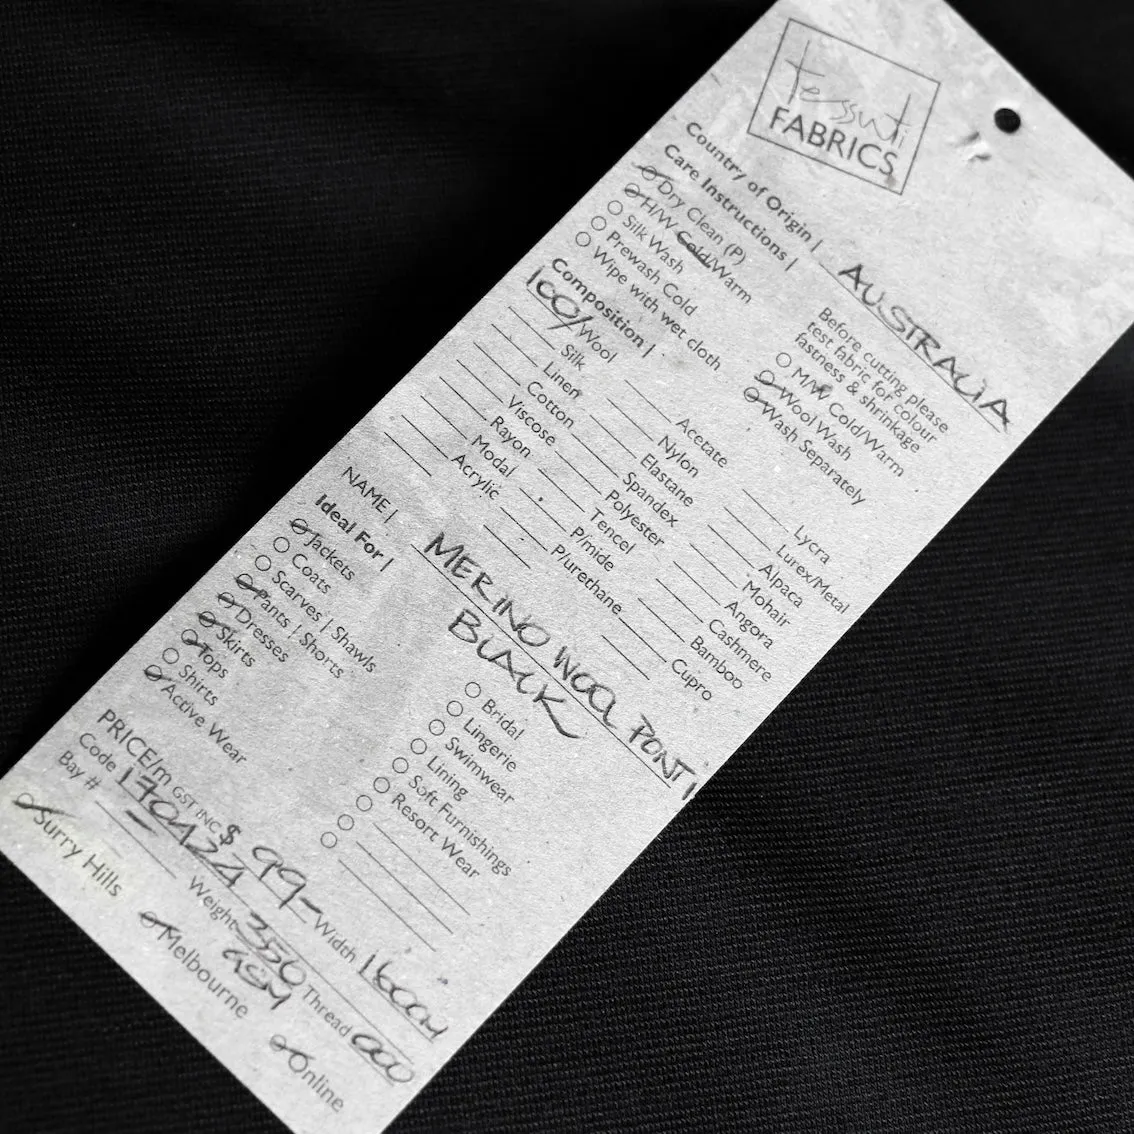 tessuti
FABRICS
Country of Origin | AUSTRALIA
Care Instructions |
Dry Clean (P)
H/W Cold/Warm
Silk Wash
Prewash Cold
Wipe with wet cloth
Before cutting please
test fabric for colour
fastness & shrinkage
M/W Cold/Warm
Wool Wash
Wash Separately
Composition |
100% Wool
Silk
Linen
Cotton
Viscose
Rayon
Modal
Acrylic
Acetate
Nylon
Elastane
Spandex
Polyester
Tencel
P/mide
P/urethane
Lycra
Lurex/Metal
Alpaca
Mohair
Angora
Cashmere
Bamboo
Cupro
NAME | MERINO WOOL PONTI
BLACK
Ideal For |
Jackets
Coats
Scarves | Shawls
Pants | Shorts
Dresses
Skirts
Tops
Shirts
Active Wear
Bridal
Lingerie
Swimwear
Lining
Soft Furnishings
Resort Wear
PRICE/m GST INC $ 99- Width 160cm
Code Weight 350 GSM Thread 000
Bay #
Surry Hills Melbourne Online